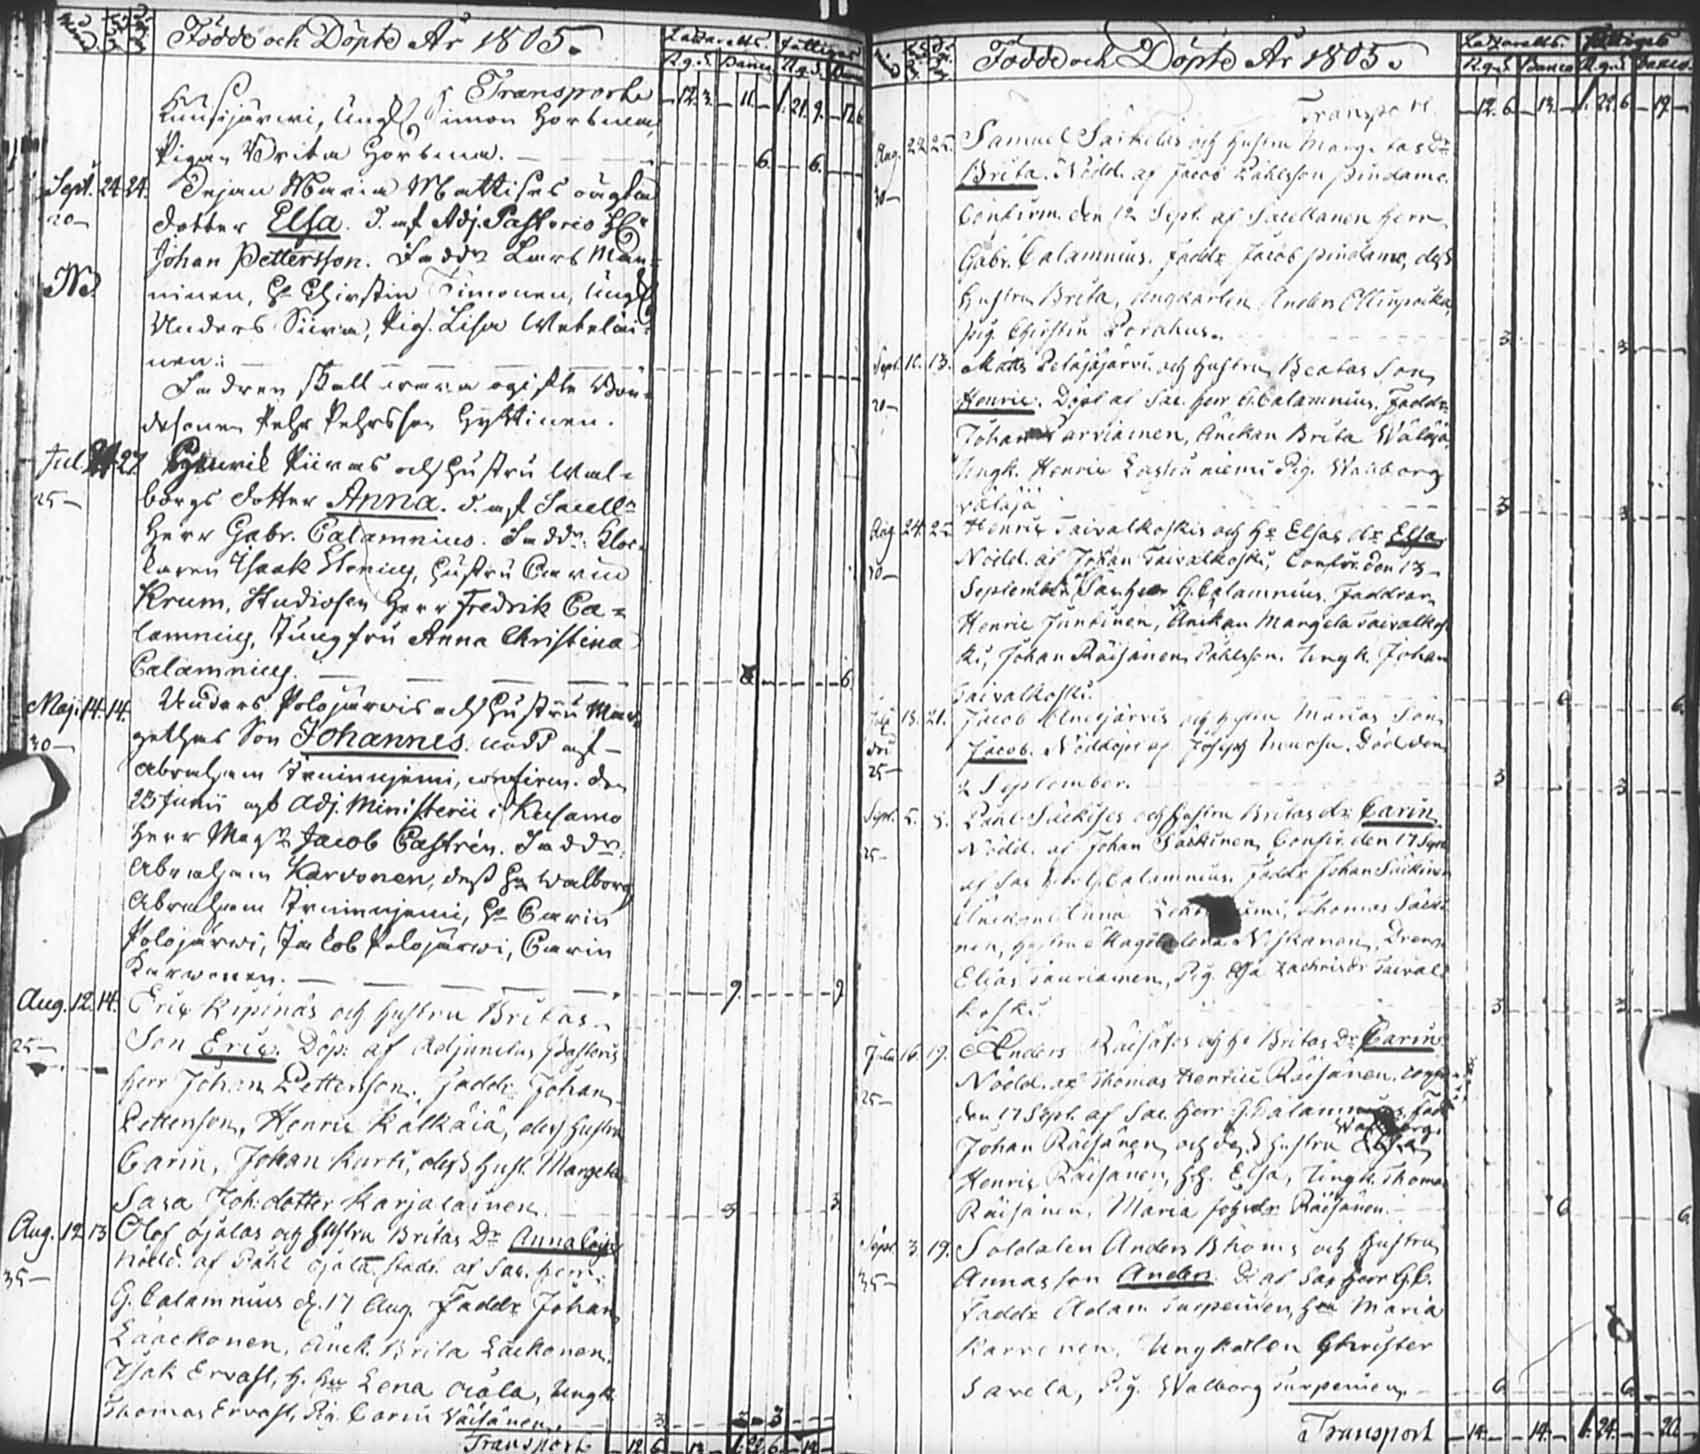 Födde och Döpte År 1805.
Lazaretts. Fattigas
R.g.S. Banco R.g.S. Banco
Transport 12. 3. 11. 1. 21. 9. 17. 6
Kuusijärwi, Ung Simon Horbma
Pigan Brita Horbma. 6. 6.
Sept. 24. 24. Pejan Maria Mattises oägta
20 dotter Elsa. D. af Adj. Pastoris Hr
Johan Pettersson. Faddr Lars Man-
ninen, H. Chirstin Timonen, Ung
Anders Siira, Pig. Lisa Weteläi-
nen.
Fadren skall wara ogifte Bon-
desonen Pehr Pehrsson Hyttinen.
Jul. 27 Henrik Piiras och Hustru Wal-
25 borgs dotter Anna. D. af Sacell
Herr Gabr. Calamnius. Faddr. Kloc-
karen Isaak Hustru Carin
Krum, Studiosen Herr Fredrik Ca-
lamnius, Jungfru Anna Christina
Calamnius. 6
Maji. 14. 14. Anders Polojärwis och Hustru Mar-
30 gethas Son Johannes. nödd af
Abraham confirm. den
23 Junii af Adj. Ministerii i Kusamo
Herr Mag Jacob Castrén. Faddr.
Abraham Karvonen, dess H. Walborg
Abraham H. Carin
Polojärwi, Jakob Polojärwi, Carin
Karvonen. 9. 9
Aug. 12. 14. Eric Kipinäs och Hustru Britas
25 Son Eric. Döp. af Adjunctus Pastoris
Herr Johan Pettersson. Faddr Johan
Pettersson, Henric Kalkäiä, dess Hustru
Carin, Johan Kurti, dess Hust. Margeta
Sara Joh. dotter Karjalainen. 3 3.
Aug. 12. 13 Olof Ojalas och Hustru Britas Dr Anna
35 Nödd. af Påhl Ojala. Stadf. af Sac. Herr
G. Calamnius d. 17 Aug. Faddr Johan
Lääckonen, Änck. Brita Läckonen.
Isak Ervast, H. Lena Ojala, Ungk.
Thomas Ervast, Pig. Carin Väisänen. 3. 3
Transport 12. 6. 13. 1. 22. 6. 19.
Födde och Döpte År 1805.
Lazaretts. Fattigas
R.g.S. Banco R.g.S. Banco
Transport. 12. 6. 13. 1. 22. 6. 19.
Aug. 22. 25. Samuel Särkelas och Hustru Margetas Dr
30 Brita. Nödd. af Jacob Påhlsson Pindame.
Confirm. den 12 Sept. af Sacellanen Herr
Gabr. Calamnius. Faddr Jacob Pindame, dess
Hustru Brita, Ungkarlen Anders
Pig. Chirstin Porahus. 3 3
Sept. 10. 13. Matts Peläjäjärvi och Hustru Beatas Son
20 Henric. Döpt af Sac. Herr G. Calamnius. Faddr
Johan Parviainen, Änckan Brita Wäläjä,
Ungk. Henric Lassiniemi Pig. Walborg
Väläjä 3 3
Aug 24. 25 Henric Taivalkoskis och H. Elsas dr Elsa
30 Nödd. af Johan Taivalkoski, Confir. den 13
September Sac. Herr G. Calamnius. Faddrar
Henric Juntinen, Änckan Margeta Taivalkos-
ki, Johan Räisänen Påhlsson. Ungk. Johan
Taivalkoski. 6 6.
Julii 18. 21. Jacob och Hustru Marias Son
25 Jacob. Nöddöpt af Joseph Död den
2 September. 3 3
Sept. 5. 8. Påhl Säckises och Hustru Britas dr Carin
25 Nödd. af Johan Säckinen, Confir. den 17 Sept
af Sac Herr G. Calamnius. Faddr Johan Säckinen
Änckan Anna Thomas Säcki-
nen, Hustru Magdalena Niskanen, Dreng
Elias Tauriainen, Pig. Elsa Zachrisdr Taival-
koski. 3 3
Julii 16. 19. Anders Räisäses och H. Britas Dr Carin
25 Nödd. af Thomas Henrici Räisänen.
den 17 Sept. af Sac. Herr G. Calamnius Fadd
Walborg
Johan Räisänen och dess Hustru
Henric Räisänen, H. Elsa, Ungk. Thomas
Räisänen, Maria Johsdr Räisänen. 6 6.
Sept. 3. 19. Soldaten Anders Bhoms och Hustru
35 Annas son Anders. D. af Sac Herr G. C.
Faddr Adam Turpeinen, H. Maria
Karvonen, Ungkarlen Christer
Savela, Pig. Walborg Turpeinen. 6. 6.
Transport 14. 14. 1. 24. 20.